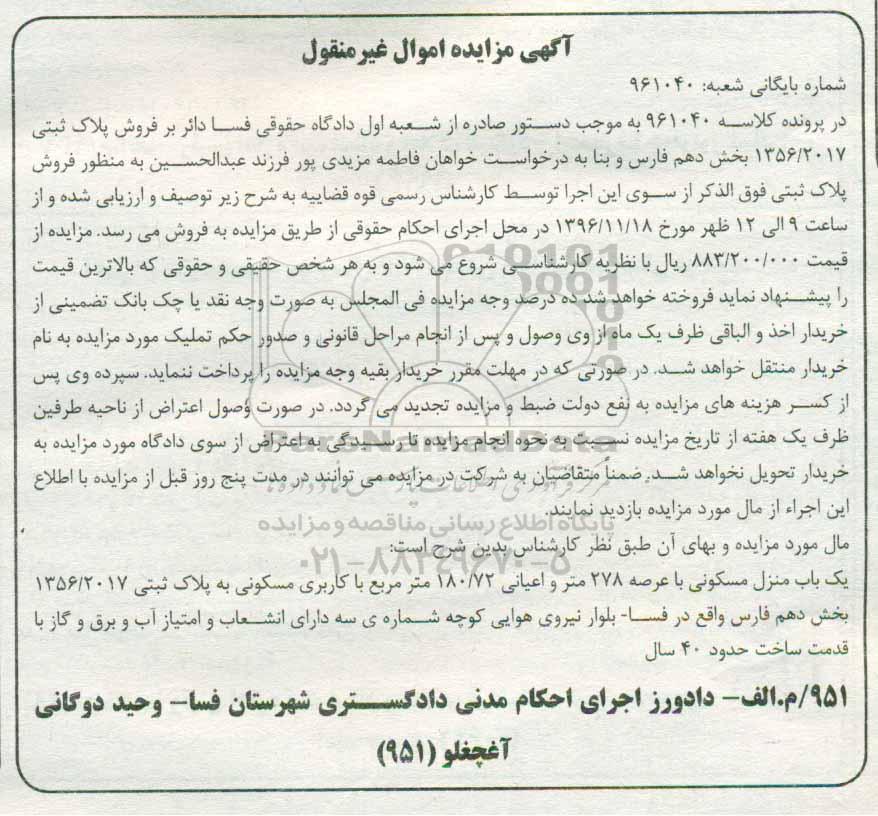 آگهی مزایده اموال غیرمنقول
شماره بایگانی شعبه: ۹۶۱۰۴۰
در پرونده کلاسه ۹۶۱۰۴۰ به موجب دستور صادره از شعبه اول دادگاه حقوقی فسا دائر بر فروش پلاک ثبتی
۱۳۵۶/۲۰۱۷ بخش دهم فارس و بنا به درخواست خواهان فاطمه مزیدی پور فرزند عبدالحسین به منظور فروش
پلاک ثبتی فوق الذکر از سوی این اجرا توسط کارشناس رسمی قوه قضاییه به شرح زیر توصیف و ارزیابی شده و از
ساعت ۹ الی ۱۲ ظهر مورخ ۱۳۹۶/۱۱/۱۸ در محل اجرای احکام حقوقی از طریق مزایده به فروش می رسد. مزایده از
قیمت ۸۸۳/۲۰۰/۰۰۰ ریال با نظریه کارشناسی شروع می شود و به هر شخص حقیقی و حقوقی که بالاترین قیمت
را پیشنهاد نماید فروخته خواهد شد ده درصد وجه مزایده فی المجلس به صورت وجه نقد یا چک بانک تضمینی از
خریدار اخذ و الباقی ظرف یک ماه از وی وصول و پس از انجام مراحل قانونی و صدور حکم تملیک مورد مزایده به نام
خریدار منتقل خواهد شد. در صورتی که در مهلت مقرر خریدار بقیه وجه مزایده را پرداخت ننماید. سپرده وی پس
از کسر هزینه های مزایده به نفع دولت ضبط و مزایده تجدید می گردد. در صورت وصول اعتراض از ناحیه طرفین
ظرف یک هفته از تاریخ مزایده نسبت به نحوه انجام مزایده تا رسیدگی به اعتراض از سوی دادگاه مورد مزایده به
خریدار تحویل نخواهد شد. ضمناً متقاضیان به شرکت در مزایده می توانند در مدت پنج روز قبل از مزایده با اطلاع
این اجراء از مال مورد مزایده بازدید نمایند.
ParsNamadData
پایگاه اطلاع رسانی مناقصه و مزایده
مال مورد مزایده و بهای آن طبق نظر کارشناس بدین شرح است:
۰۲۱-۸۸۳۴۹۶۷۰-۵
یک باب منزل مسکونی با عرصه ۲۷۸ متر و اعیانی ۱۸۰/۷۲ متر مربع با کاربری مسکونی به پلاک ثبتی ۱۳۵۶/۲۰۱۷
بخش دهم فارس واقع در فسا- بلوار نیروی هوایی کوچه شماره ی سه دارای انشعاب و امتیاز آب و برق و گاز با
قدمت ساخت حدود ۴۰ سال
۹۵۱/م.الف- دادورز اجرای احکام مدنی دادگستری شهرستان فسا- وحید دوگانی
آغچغلو (۹۵۱)